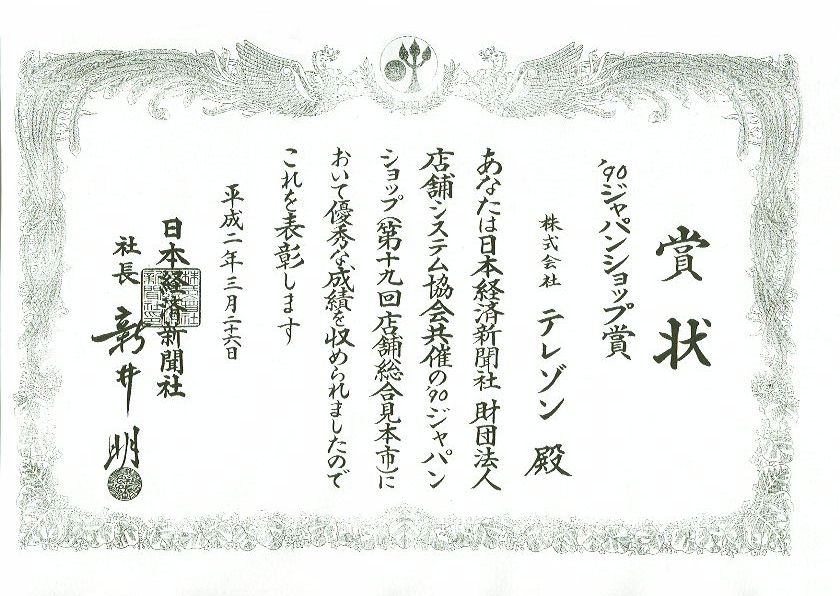 賞状
'90ジャパンショップ賞
株式会社 テレゾン 殿
あなたは日本経済新聞社 財団法人
店舗システム協会共催の'90ジャパン
ショップ(第十九回店舗総合見本市)に
おいて優秀な成績を収められましたので
これを表彰します
平成二年三月二十六日
日本経済新聞社
社長 新井 明